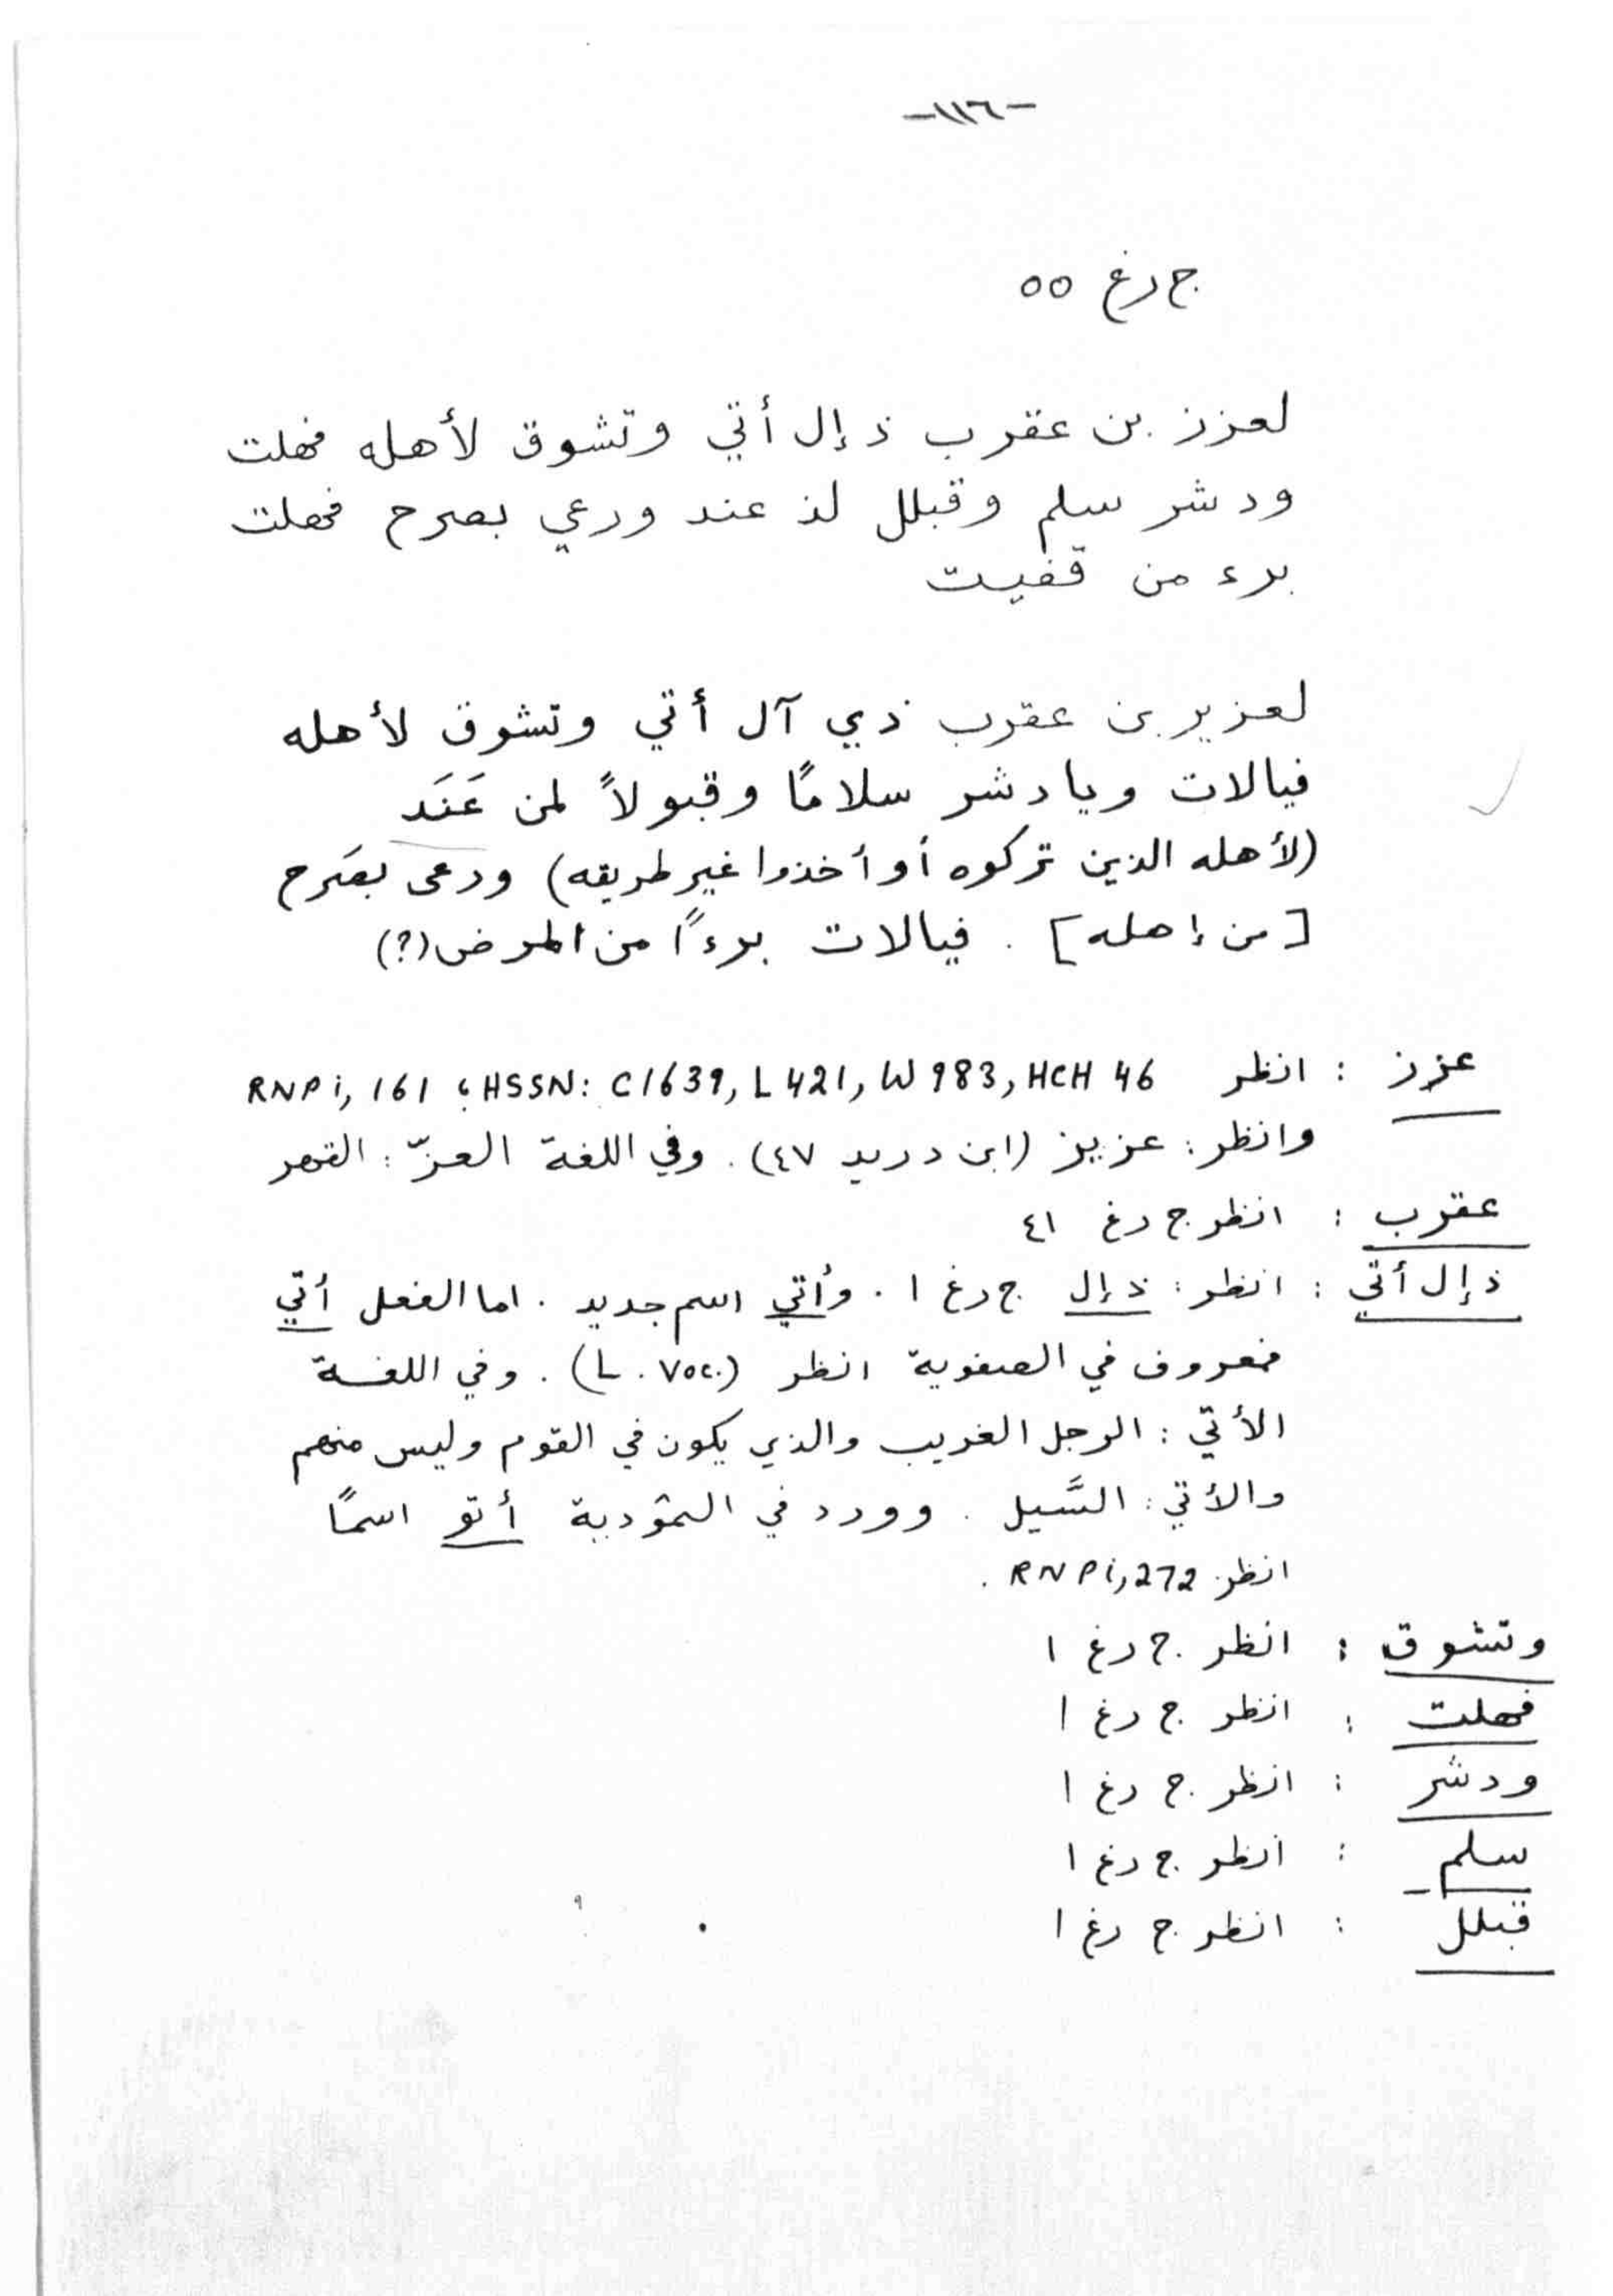 -١١٦-
ج رغ ٥٥
لعزز بن عقرب ذ إل أتي وتشوق لأهله فهلت
ودشر سلم وقبلل لذ عند ورعي بصرح فهلت
برء من قفيت
لعزيز بن عقرب ذي آل أتي وتشوق لأهله
فيالات ويا دشر سلامًا وقبولاً لمن عَنَد
(لأهله الذين تركوه أو أخذوا غير طريقه) ورعى بصَرح
[من إهله] . فيالات برءاً من المرض (؟)
عزز : انظر RNPi, 161 ؛ HSSN: C1639, L421, W983, HCH 46
وانظر : عزيز (ابن دريد ٤٧) . وفي اللغة العزّ : القهر
عقرب : انظر ج رغ ٤١
ذ إل أتي : انظر : ذ إل ج رغ ١ . وأتي اسم جديد . اما الفعل أتي
فمعروف في الصفوية انظر (L. Voc.) . وفي اللغة
الأتي : الرجل الغريب والذي يكون في القوم وليس منهم
والأتي : السَّيل . وورد في الثمودية أتو اسمًا
انظر RNPi, 272 .
وتشوق : انظر ج رغ ١
فهلت : انظر ج رغ ١
ودشر : انظر ج رغ ١
سلم : انظر ج رغ ١
قبلل : انظر ج رغ ١